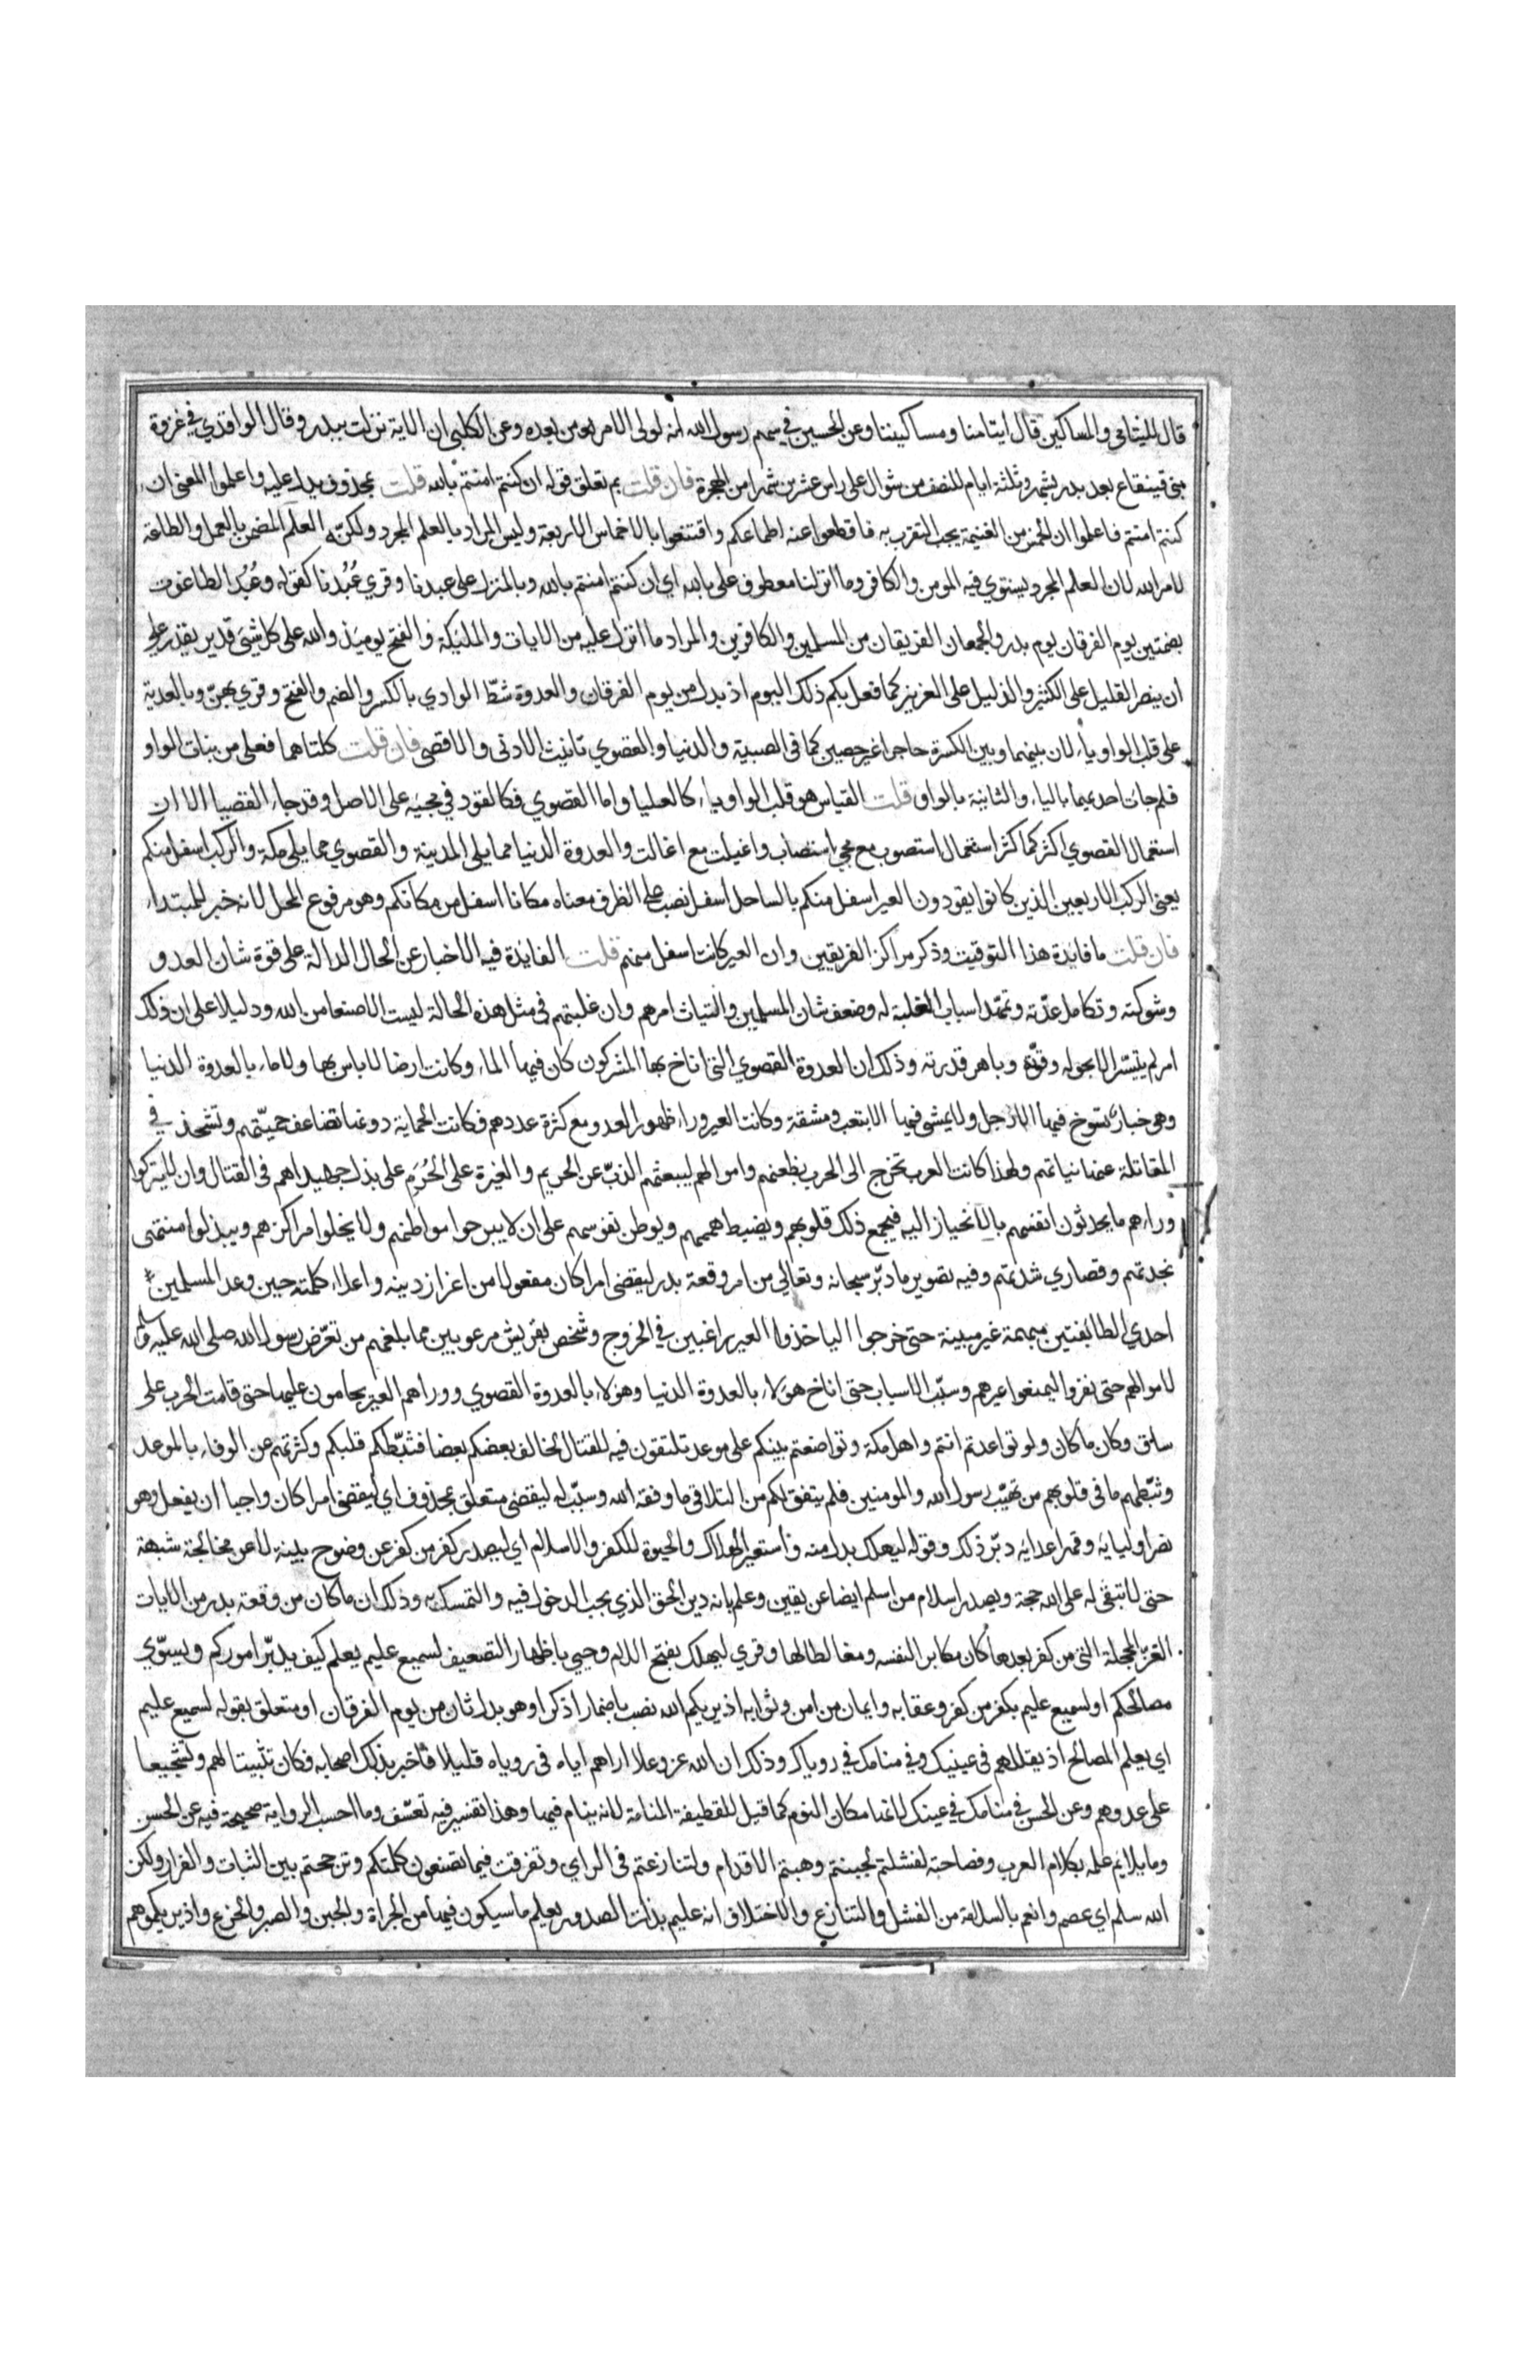 قال لليتامى والمساكين قال ايتامنا ومساكيننا وعن الحسين في سهم رسول الله انه لولي الامر من بعده وعن الكلبي ان الاية نزلت ببدر وقال الواقدي في غزوة
بني قينقاع بعد بدر بشهر وثلثة ايام للنصف من شوال على راس عشرين شهرا من الهجرة فان قلت بم تعلق قوله ان كنتم امنتم بالله قلت بمحذوف يدل عليه واعلموا المعنى ان
كنتم امنتم فاعلموا ان الخمس من الغنيمة يجب التقرب به فاقطعوا عنه اطماعكم واقتنعوا بالاخماس الاربعة وليس المراد بالعلم المجرد ولكنّه العلم المضمن بالعمل والطاعة
لامر الله لان العلم المجرد يستوي فيه المومن والكافر وما انزلنا معطوف على بالله اي ان كنتم امنتم بالله وبالمنزل على عبدنا وقري عُبُدنا كقوله وعُبُد الطاغوت
بضمتين يوم الفرقان يوم بدر والجمعان الفريقان من المسلمين والكافرين والمراد ما انزل عليه من الايات والمليكة والفتح يوميذ والله على كل شيئ قدير يقدر على
ان ينصر القليل على الكثير والذليل على العزيز كما فعل بكم ذلك اليوم اذ بدل من يوم الفرقان والعدوة شطّ الوادي بالكسر والضم والفتح وقري بهنّ وبالعدية
على قلب الواو ياء لان بينها وبين الكسرة حاجزا غير حصين كما في الصبية والدنيا والقصوي تانيث الادنى والاقصى فان قلت كلتاهما فعلى من بنات الواو
فلم جات احديهما بالياء والثانية بالواو قلت القياس هو قلب الواو ياء كالعليا واما القصوي فكالقود في مجيئه على الاصل وقد جاء القصيا الا ان
استعمال القصوي اكثر كما كثر استعمال استصوب مع مجي استصاب واغيلت مع اغالت والعدوة الدنيا مما يلي المدينة والقصوي مما يلي مكة والركب اسفل منكم
يعني الركب الاربعين الذين كانوا يقودون العير اسفل منكم بالساحل اسفل نصب على الظرف معناه مكانا اسفل من مكانكم وهو مرفوع المحل لانه خبر للمبتداء
فان قلت ما فايدة هذا التوقيت وذكر مراكز الفريقين وان العير كانت اسفل منهم قلت الفايدة فيه الاخبار عن الحال الدالة على قوة شان العدو
وشوكته وتكامل عدّته وتمهّد اسباب الغلبة له وضعف شان المسلمين والتياث امرهم وان غلبتهم في مثل هذه الحالة ليست الا صنعا من الله ودليلا على ان ذلك
امر لم يتيسّر الا بحوله وقوّته وباهر قدرته وذلك ان العدوة القصوي التي اناخ بها المشركون كان فيها الماء وكانت ارضا لا باس بها ولا ماء بالعدوة الدنيا
وهي خبار تسوخ فيها الارجل ولا يمشى فيها الا بتعب ومشقة وكانت العير وراء ظهور العدو مع كثرة عددهم فكانت الحماية دونها تضاعف حميّتهم وتشحذ في
المقاتلة عنها نياتهم ولهذا كانت العرب تخرج الى الحرب بظعنهم واموالهم ليبعثهم الذبّ عن الحريم والغيرة على الحُرَم على بذل جهيداهم في القتال وان لا يتركوا
وراءهم ما يحدثون انفسهم بالانحياز اليه فيجمع ذلك قلوبهم ويضبط هممهم ويوطن نفوسهم على ان لا يبرحوا مواطنهم ولا يخلوا مراكزهم ويبذلوا منتهى
نجدتهم وقصاري شدتهم وفيه تصوير ما دبّر سبحانه وتعالى من امر وقعة بدر ليقضي امرا كان مفعولا من اعزاز دينه واعلاء كلمته حين وعد المسلمين
احدي الطائفتين مبهمة غير مبينة حتى خرجوا لياخذوا العير راغبين في الخروج وشخص بقريش مرعوبين مما بلغهم من تعرّض رسول الله صلى الله عليه وسلم
لاموالهم حتى نفروا ليمنعوا عيرهم وسبّب الاسباب حتى اناخ هولاء بالعدوة الدنيا وهولاء بالعدوة القصوي ووراهم العير يحامون عليها حتى قامت الحرب على
ساق وكان ما كان ولو تواعدتم انتم واهل مكة وتواضعتم بينكم على موعد تلتقون فيه للقتال لخالف بعضكم بعضا فثبّطكم قلتكم وكثرتهم عن الوفاء بالموعد
وثبّطهم ما في قلوبهم من تهيّب رسول الله والمومنين فلم يتفق لكم من التلاقي ما وفقه الله وسبّب له ليقضي متعلق بمحذوف اي ليقضي امرا كان واجبا ان يفعل وهو
نصر اوليايه وقهر اعدايه دبّر ذلك وقوله ليهلك بدل منه واستعير الهلاك والحيوة للكفر والاسلام اي ليصدر كفر من كفر عن وضوح بينة لا عن مخالجة شبهة
حتى لا تبقى له على الله حجة ويصدر اسلام من اسلم ايضا عن يقين وعلم بانه دين الحق الذي يجب الدخول فيه والتمسك به وذلك ان ما كان من وقعة بدر من الايات
الغرّ المحجلة التي من كفر بعدها كان مكابرا لنفسه ومغالطا لها وقري ليهلك بفتح اللام وحيي باظهار التضعيف لسميع عليم يعلم كيف يدبّر اموركم ويسوّي
مصالحكم او لسميع عليم بكفر من كفر وعقابه وايمان من امن وثوابه اذ يريكهم الله نصب باضمار اذكر او هو بدل ثان من يوم الفرقان او متعلق بقوله لسميع عليم
اي يعلم المصالح اذ يقللهم في عينيك وفي منامك في روياك وذلك ان الله عز وعلا اراهم اياه في روياه قليلا فاخبر بذلك اصحابه فكان تثبيتا لهم وتشجيعا
على عدوهم وعن الحسن في منامك في عينك لانها مكان النوم كما قيل للقطيفة المنامة لانه ينام فيها وهذا تفسير فيه تعسّف وما احسب الرواية صحيحة فيه عن الحسن
وما يلايم علمه بكلام العرب وفصاحته لفشلتم لجبنتم وهبتم الاقدام ولتنازعتم في الراي وتفرقت فيما تصنعون كلمتكم وترجحتم بين الثبات والفرار ولكن
الله سلم اي عصم وانعم بالسلامة من الفشل والتنازع والاختلاف انه عليم بذات الصدور يعلم ما سيكون فيها من الجراة والجبن والصبر والجزع واذ يريكموهم